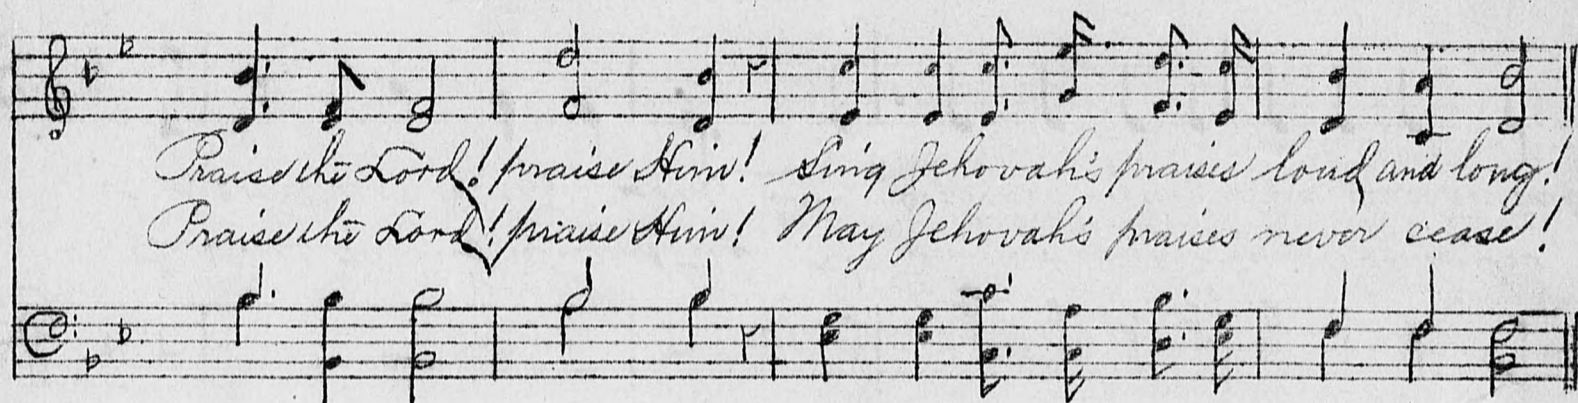 Praise the Lord! praise Him! Sing Jehovah's praises loud and long!
Praise the Lord! praise Him! May Jehovah's praises never cease!